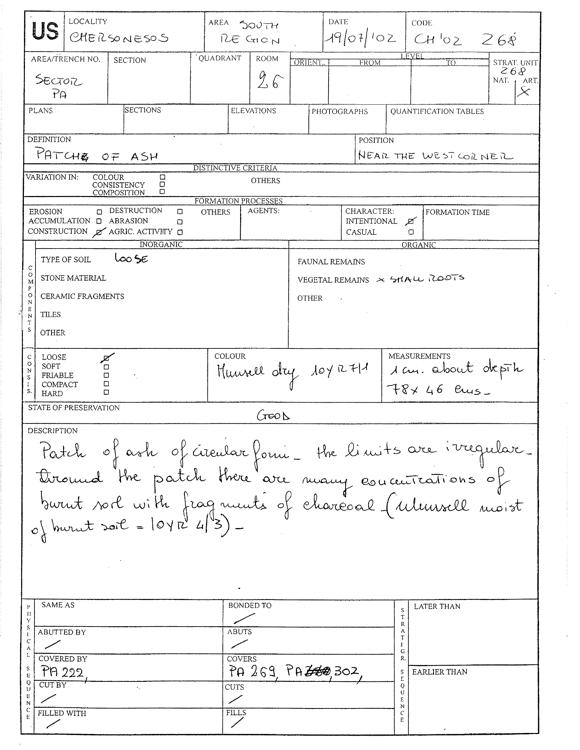 US
LOCALITY
CHERSONESOS
AREA SOUTH
REGION
DATE
19/07/'02
CODE
CH'02 268
AREA/TRENCH NO.
SECTOR
PA
SECTION
QUADRANT
ROOM
26
LEVEL
ORIENT.
FROM
TO
STRAT. UNIT
268
NAT. ART.
X
PLANS
SECTIONS
ELEVATIONS
PHOTOGRAPHS
QUANTIFICATION TABLES
DEFINITION
PATCH OF ASH
POSITION
NEAR THE WEST CORNER
DISTINCTIVE CRITERIA
VARIATION IN:
COLOUR
CONSISTENCY
COMPOSITION
OTHERS
FORMATION PROCESSES
EROSION
ACCUMULATION
CONSTRUCTION
DESTRUCTION
ABRASION
AGRIC. ACTIVITY
OTHERS
AGENTS:
CHARACTER:
INTENTIONAL
CASUAL
FORMATION TIME
COMPONENTS
INORGANIC
TYPE OF SOIL LOOSE
STONE MATERIAL
CERAMIC FRAGMENTS
TILES
OTHER
ORGANIC
FAUNAL REMAINS
VEGETAL REMAINS x SMALL ROOTS
OTHER
CONSIS.
LOOSE
SOFT
FRIABLE
COMPACT
HARD
COLOUR
Munsell dry 10YR 7/1
MEASUREMENTS
1 cm. about depth
78x46 cms_
STATE OF PRESERVATION
GOOD
DESCRIPTION
Patch of ash of circular form_ the limits are irregular_
Around the patch there are many concentrations of
burnt soil with fragments of charcoal_(Munsell moist
of burnt soil = 10YR 4/3)_
PHYSICAL SEQUENCE
SAME AS
BONDED TO
/
ABUTTED BY
/
ABUTS
/
COVERED BY
PA 222,
COVERS
PA 269, PA 302,
CUT BY
/
CUTS
/
FILLED WITH
/
FILLS
/
STRATIGR. SEQUENCE
LATER THAN
EARLIER THAN